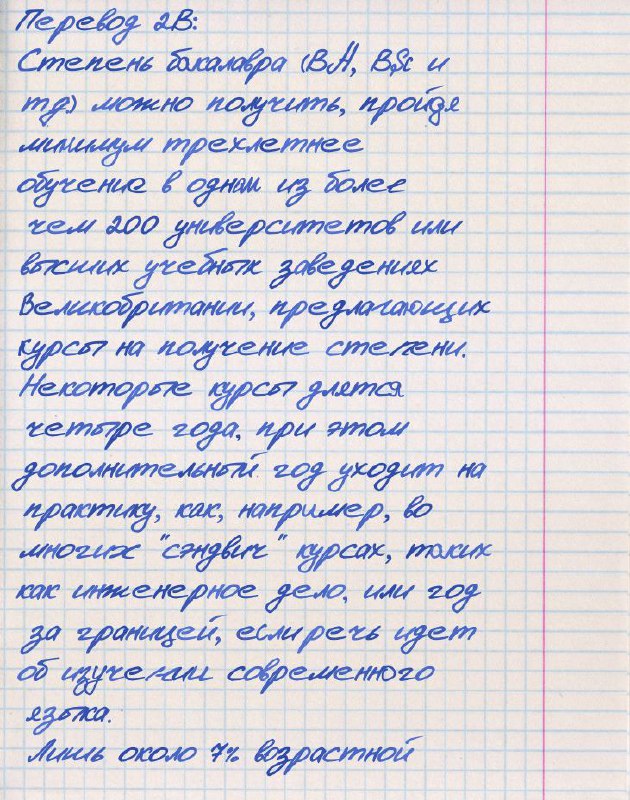 Перевод 2В:
Степень бакалавра (BA, BSc и
тд.) можно получить, пройдя
минимум трехлетнее
обучение в одном из более
чем 200 университетов или
высших учебных заведениях
Великобритании, предлагающих
курсы на получение степени.
Некоторые курсы длятся
четыре года, при этом
дополнительный год уходит на
практику, как, например, во
многих "сэндвич" курсах, таких
как инженерное дело, или год
за границей, если речь идет
об изучении современного
языка.
Лишь около 7% возрастной